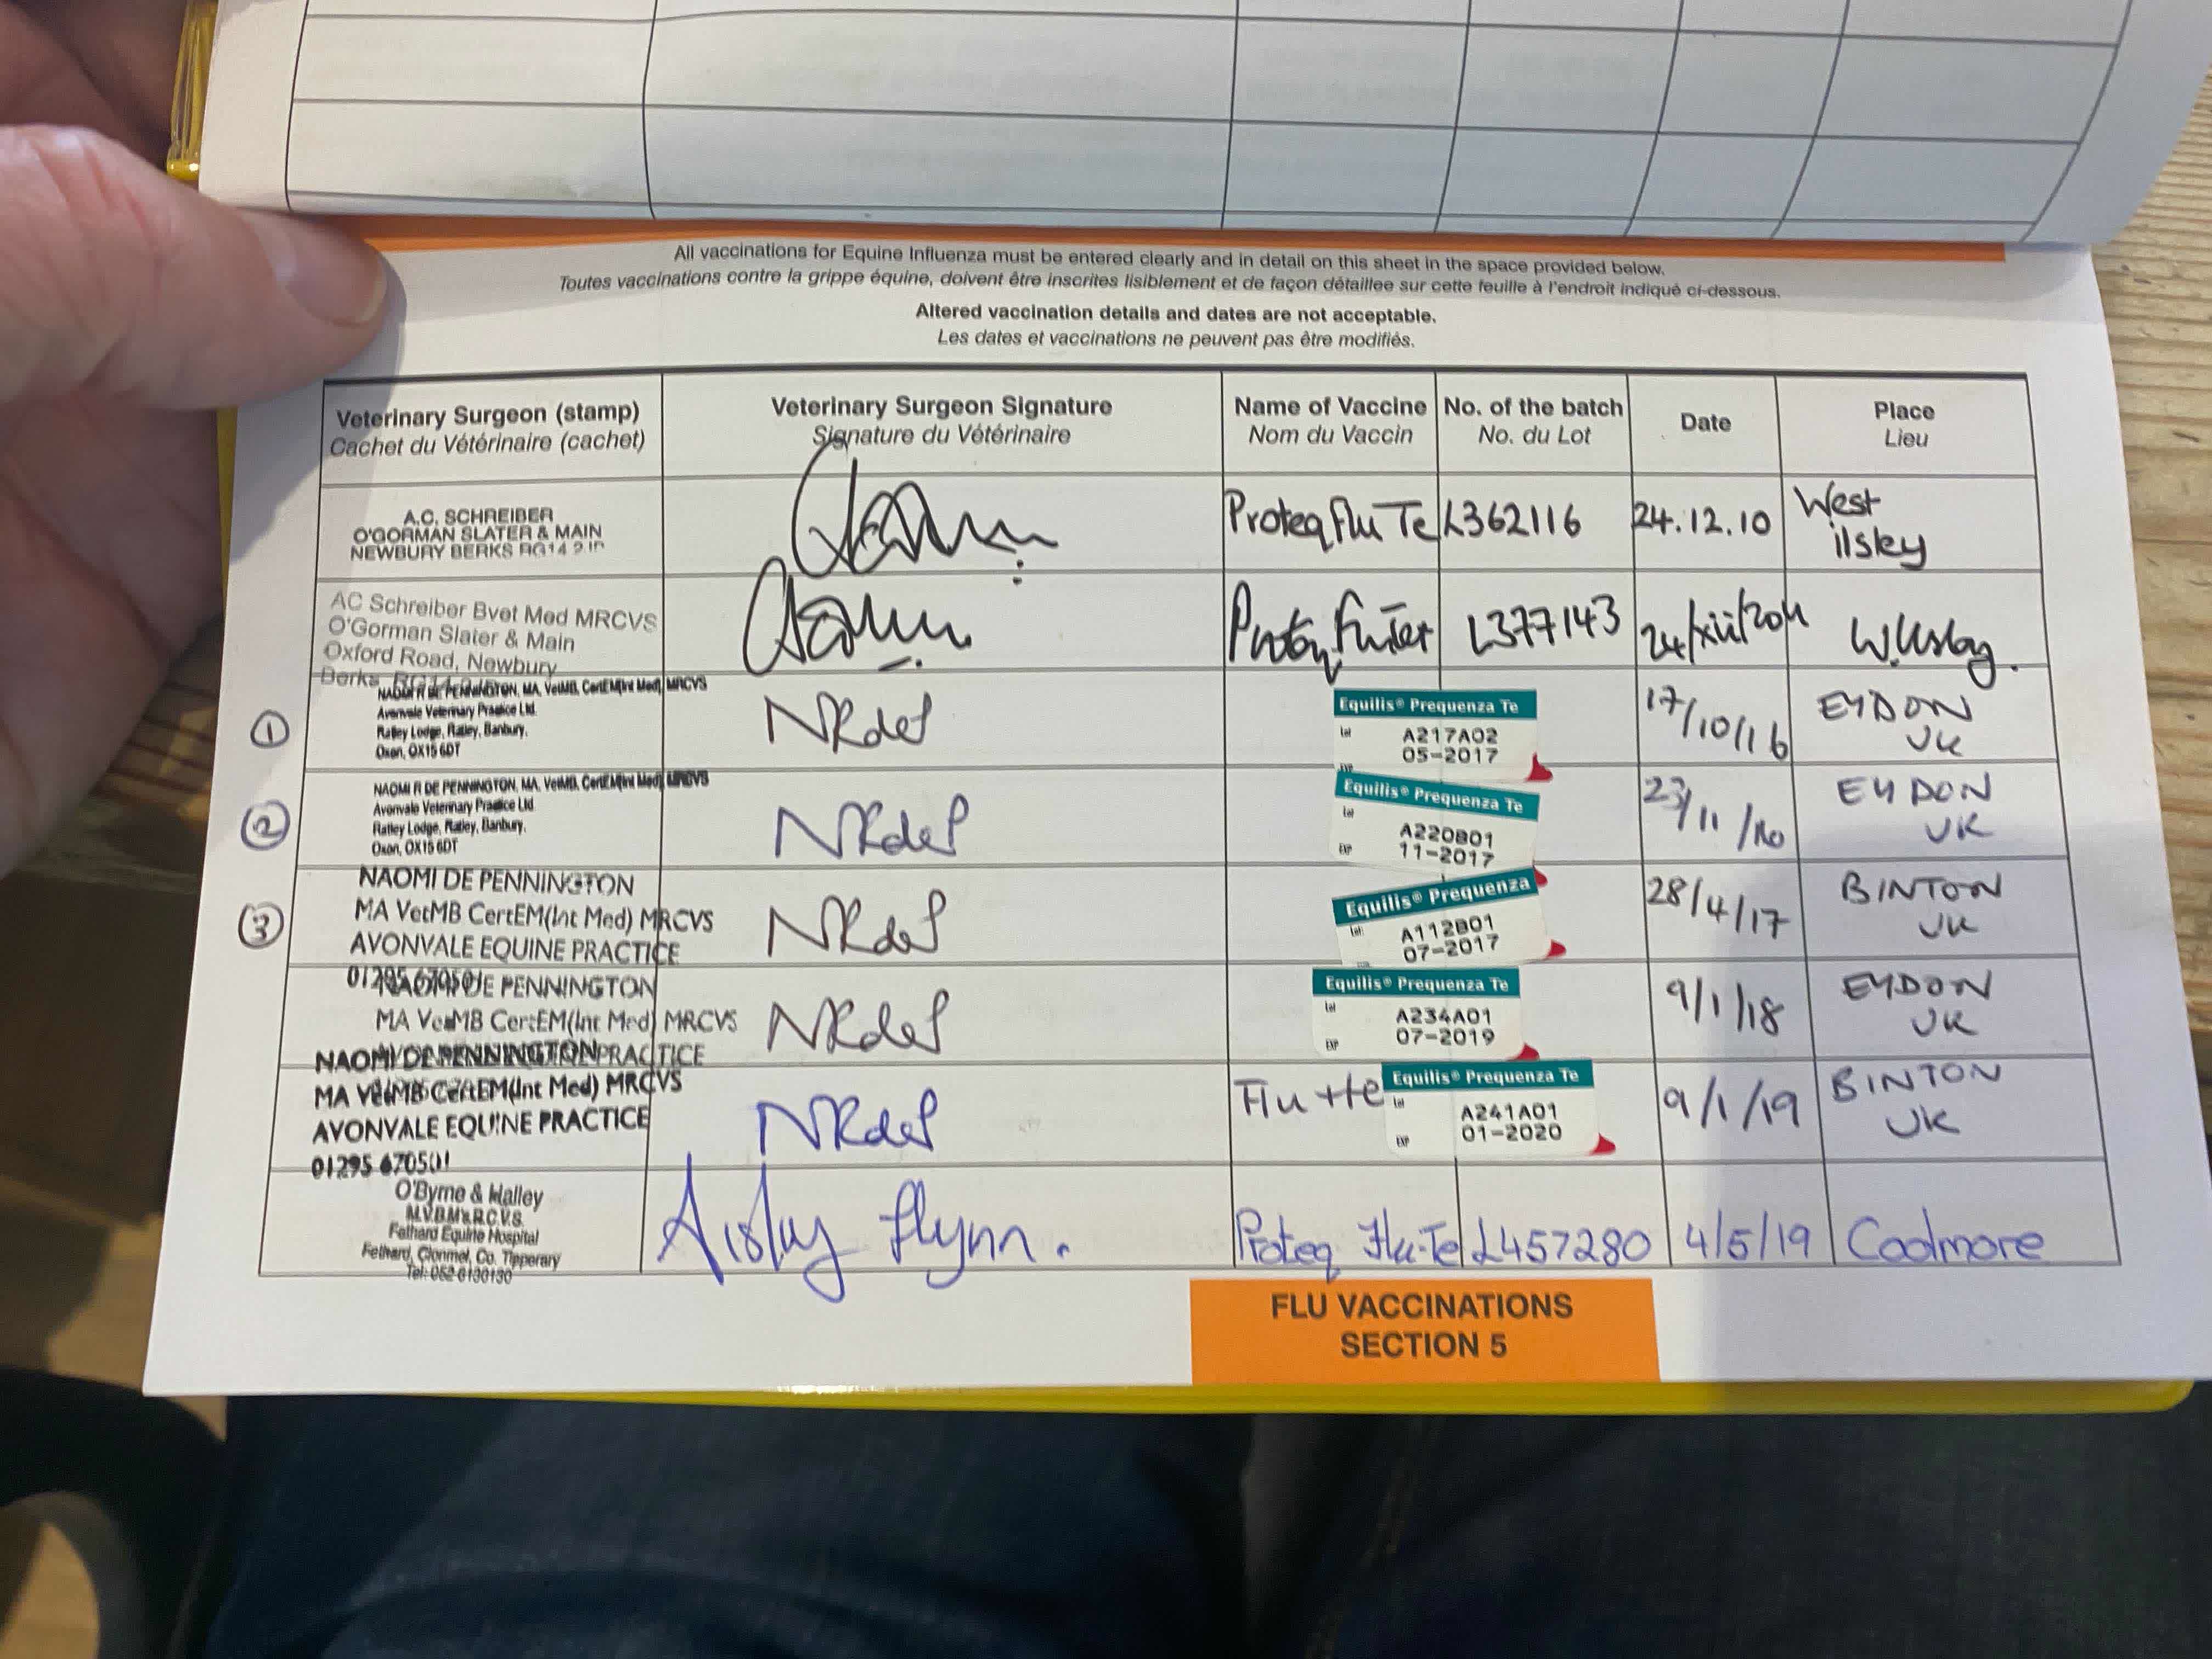 All vaccinations for Equine Influenza must be entered clearly and in detail on this sheet in the space provided below.
Toutes vaccinations contre la grippe équine, doivent être inscrites lisiblement et de façon détaillee sur cette feuille à l'endroit indiqué ci-dessous.
Altered vaccination details and dates are not acceptable.
Les dates et vaccinations ne peuvent pas être modifiés.
Veterinary Surgeon (stamp)
Cachet du Vétérinaire (cachet)
Veterinary Surgeon Signature
Signature du Vétérinaire
Name of Vaccine
Nom du Vaccin
No. of the batch
No. du Lot
Date
Place
Lieu
A.C. SCHREIBER
O'GORMAN SLATER & MAIN
NEWBURY BERKS RG14
Proteq Flu Te
L362116
24.12.10
West
ilsley
AC Schreiber Bvet Med MRCVS
O'Gorman Slater & Main
Oxford Road, Newbury
Berks
L377143
24/xii/2011
W. Ilsley.
1
NAOMI R DE PENNINGTON, MA, VetMB, CertEM(Int Med) MRCVS
Avonvale Veterinary Practice Ltd.
Ratley Lodge, Ratley, Banbury,
Oxon, OX15 6DT
NRdeP
Equilis® Prequenza Te
Lot
A217A02
05-2017
EXP
17/10/16
EYDON
UK
2
NAOMI R DE PENNINGTON, MA, VetMB, CertEM(Int Med) MRCVS
Avonvale Veterinary Practice Ltd
Ratley Lodge, Ratley, Banbury,
Oxon, OX15 6DT
NRdeP
Equilis® Prequenza Te
Lot
A220B01
EXP
11-2017
23/11/16
EYDON
UK
3
NAOMI DE PENNINGTON
MA VetMB CertEM(Int Med) MRCVS
AVONVALE EQUINE PRACTICE
01295 670501
NRdeP
Equilis® Prequenza
Lot
A112B01
07-2017
28/4/17
BINTON
UK
NAOMI DE PENNINGTON
MA VetMB CertEM(Int Med) MRCVS
PRACTICE
NRdeP
Equilis® Prequenza Te
Lot
A234A01
EXP
07-2019
9/1/18
EYDON
UK
NAOMI DE PENNINGTON
MA VetMB CertEM(Int Med) MRCVS
AVONVALE EQUINE PRACTICE
01295 670501
NRdeP
Flu +te
Equilis® Prequenza Te
Lot
A241A01
EXP
01-2020
9/1/19
BINTON
UK
O'Byrne & Halley
M.V.B.M's.R.C.V.S.
Fethard Equine Hospital
Fethard, Clonmel, Co. Tipperary
Tel: 052 6130130
Flynn.
Proteq Flu-Te
L457280
4/5/19
Coolmore
FLU VACCINATIONS
SECTION 5